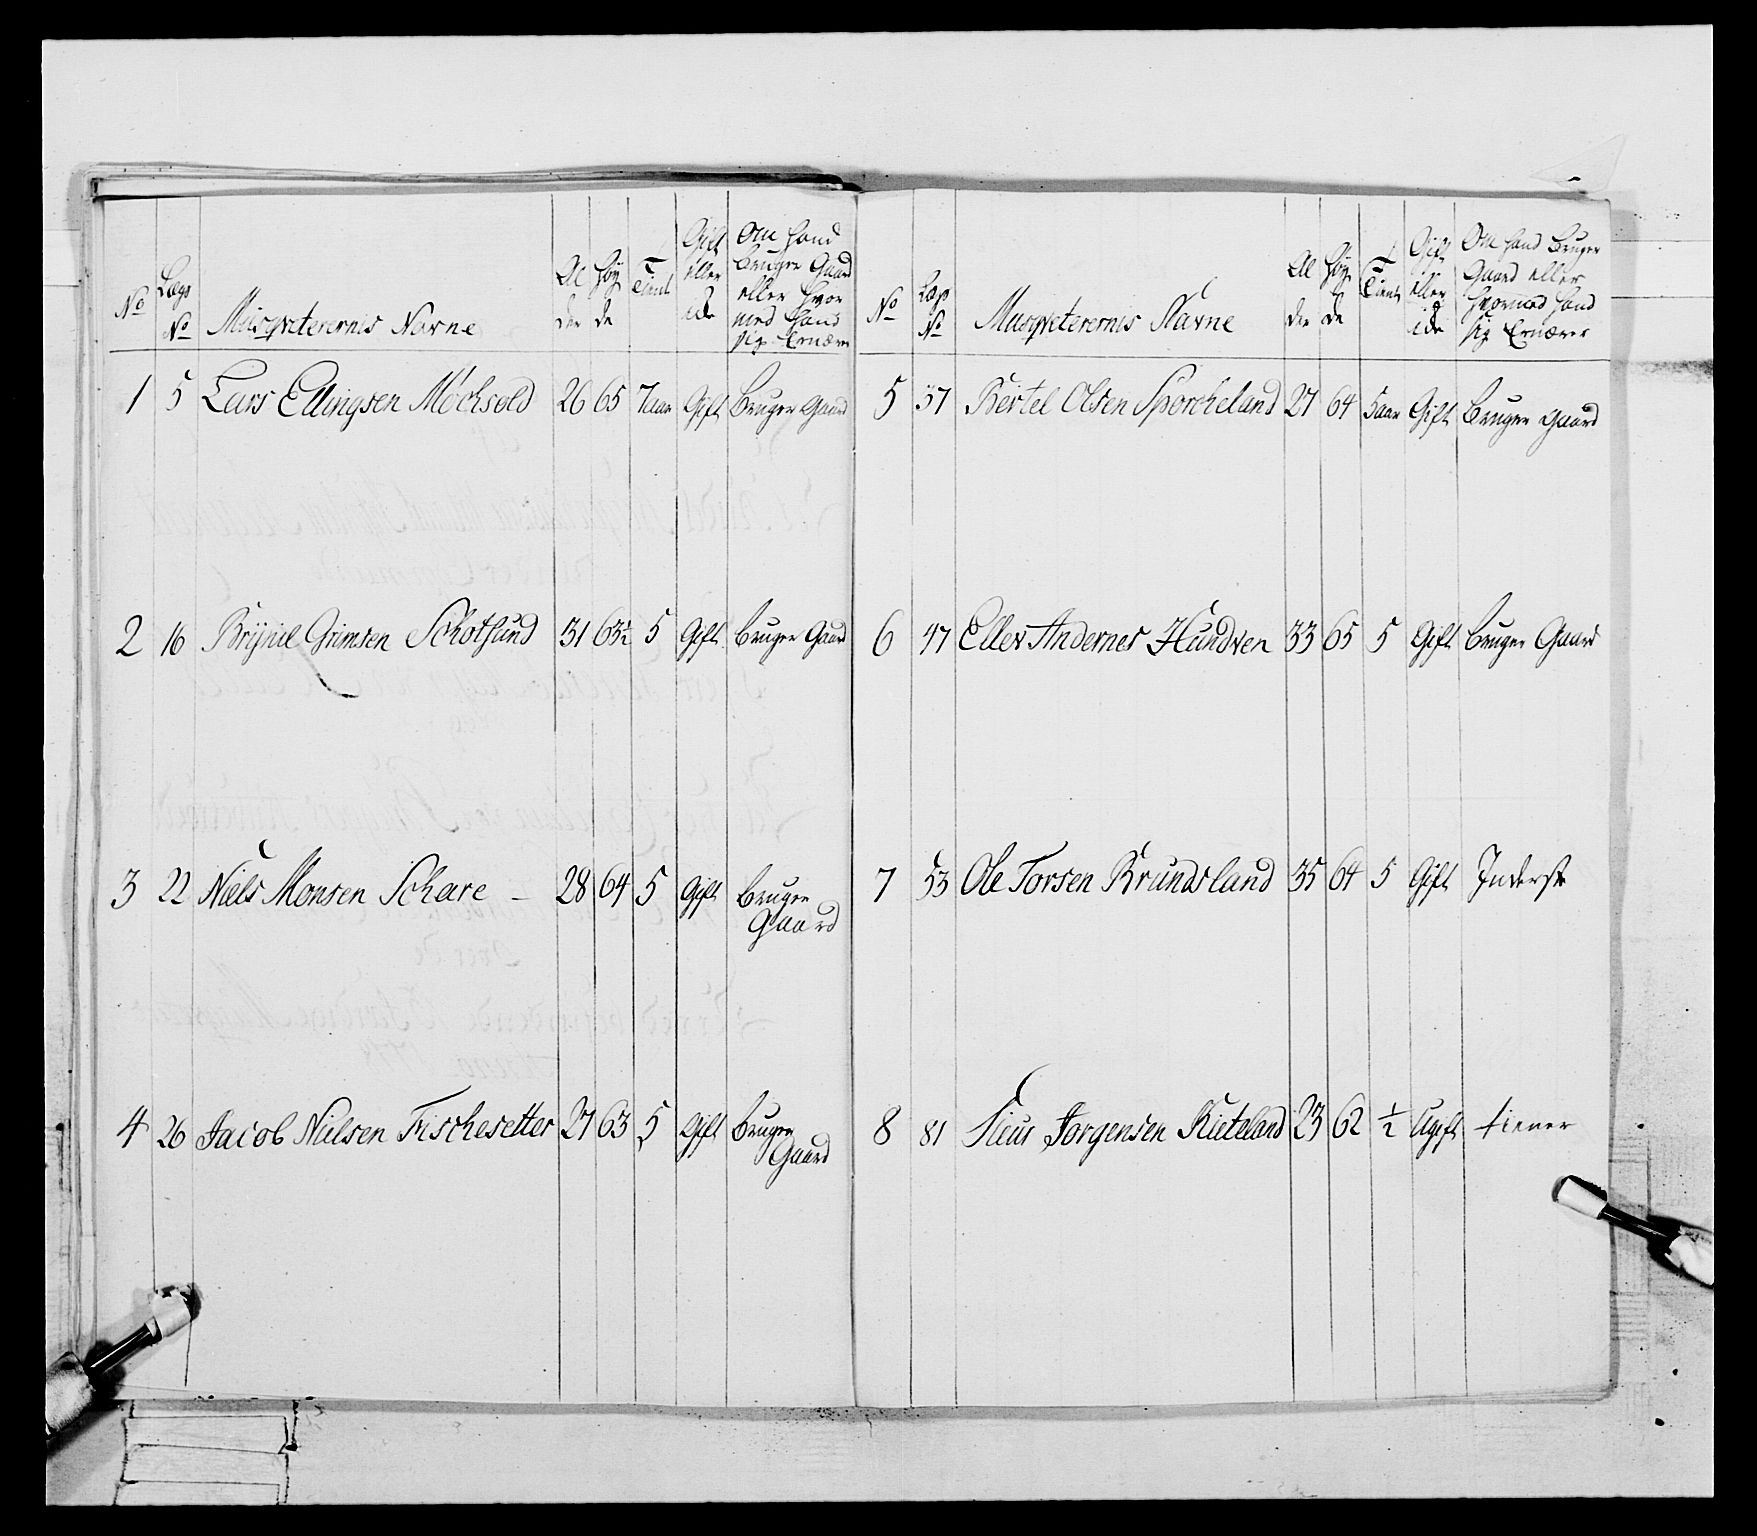 No Lægs No Musqveterernis Navne Al der Høy de Tient Gift eller ide Om hand bruger Gaard eller hvor med hand sig Ernærer
1 5 Lars Ellingsen Møchsold 26 65 7 aar Gift Bruger Gaard
2 16 Brynil Grimsen Schotsund 31 63½ 5 Gift bruger Gaard
3 22 Niels Monsen Schare – 28 64 5 Gift bruger Gaard
4 26 Jacob Nielsen Fischesetter 27 63 5 Gift bruger Gaard
No Lægs No Musqveterernis Navne Al der Høy de Tient Gift eller ide Om hand bruger Gaard eller hvormed hand sig Ernærer
5 37 Bertel Olsen Sporcheland 27 64 5 aar Gift bruger Gaard
6 47 Ellev Andernes Hundven 33 65 5 Gift bruger Gaard
7 53 Ole Torsen Brundsland 35 64 5 Gift Inderst
8 81 Jorgensen Kieteland 23 62 ½ Ugift tiener